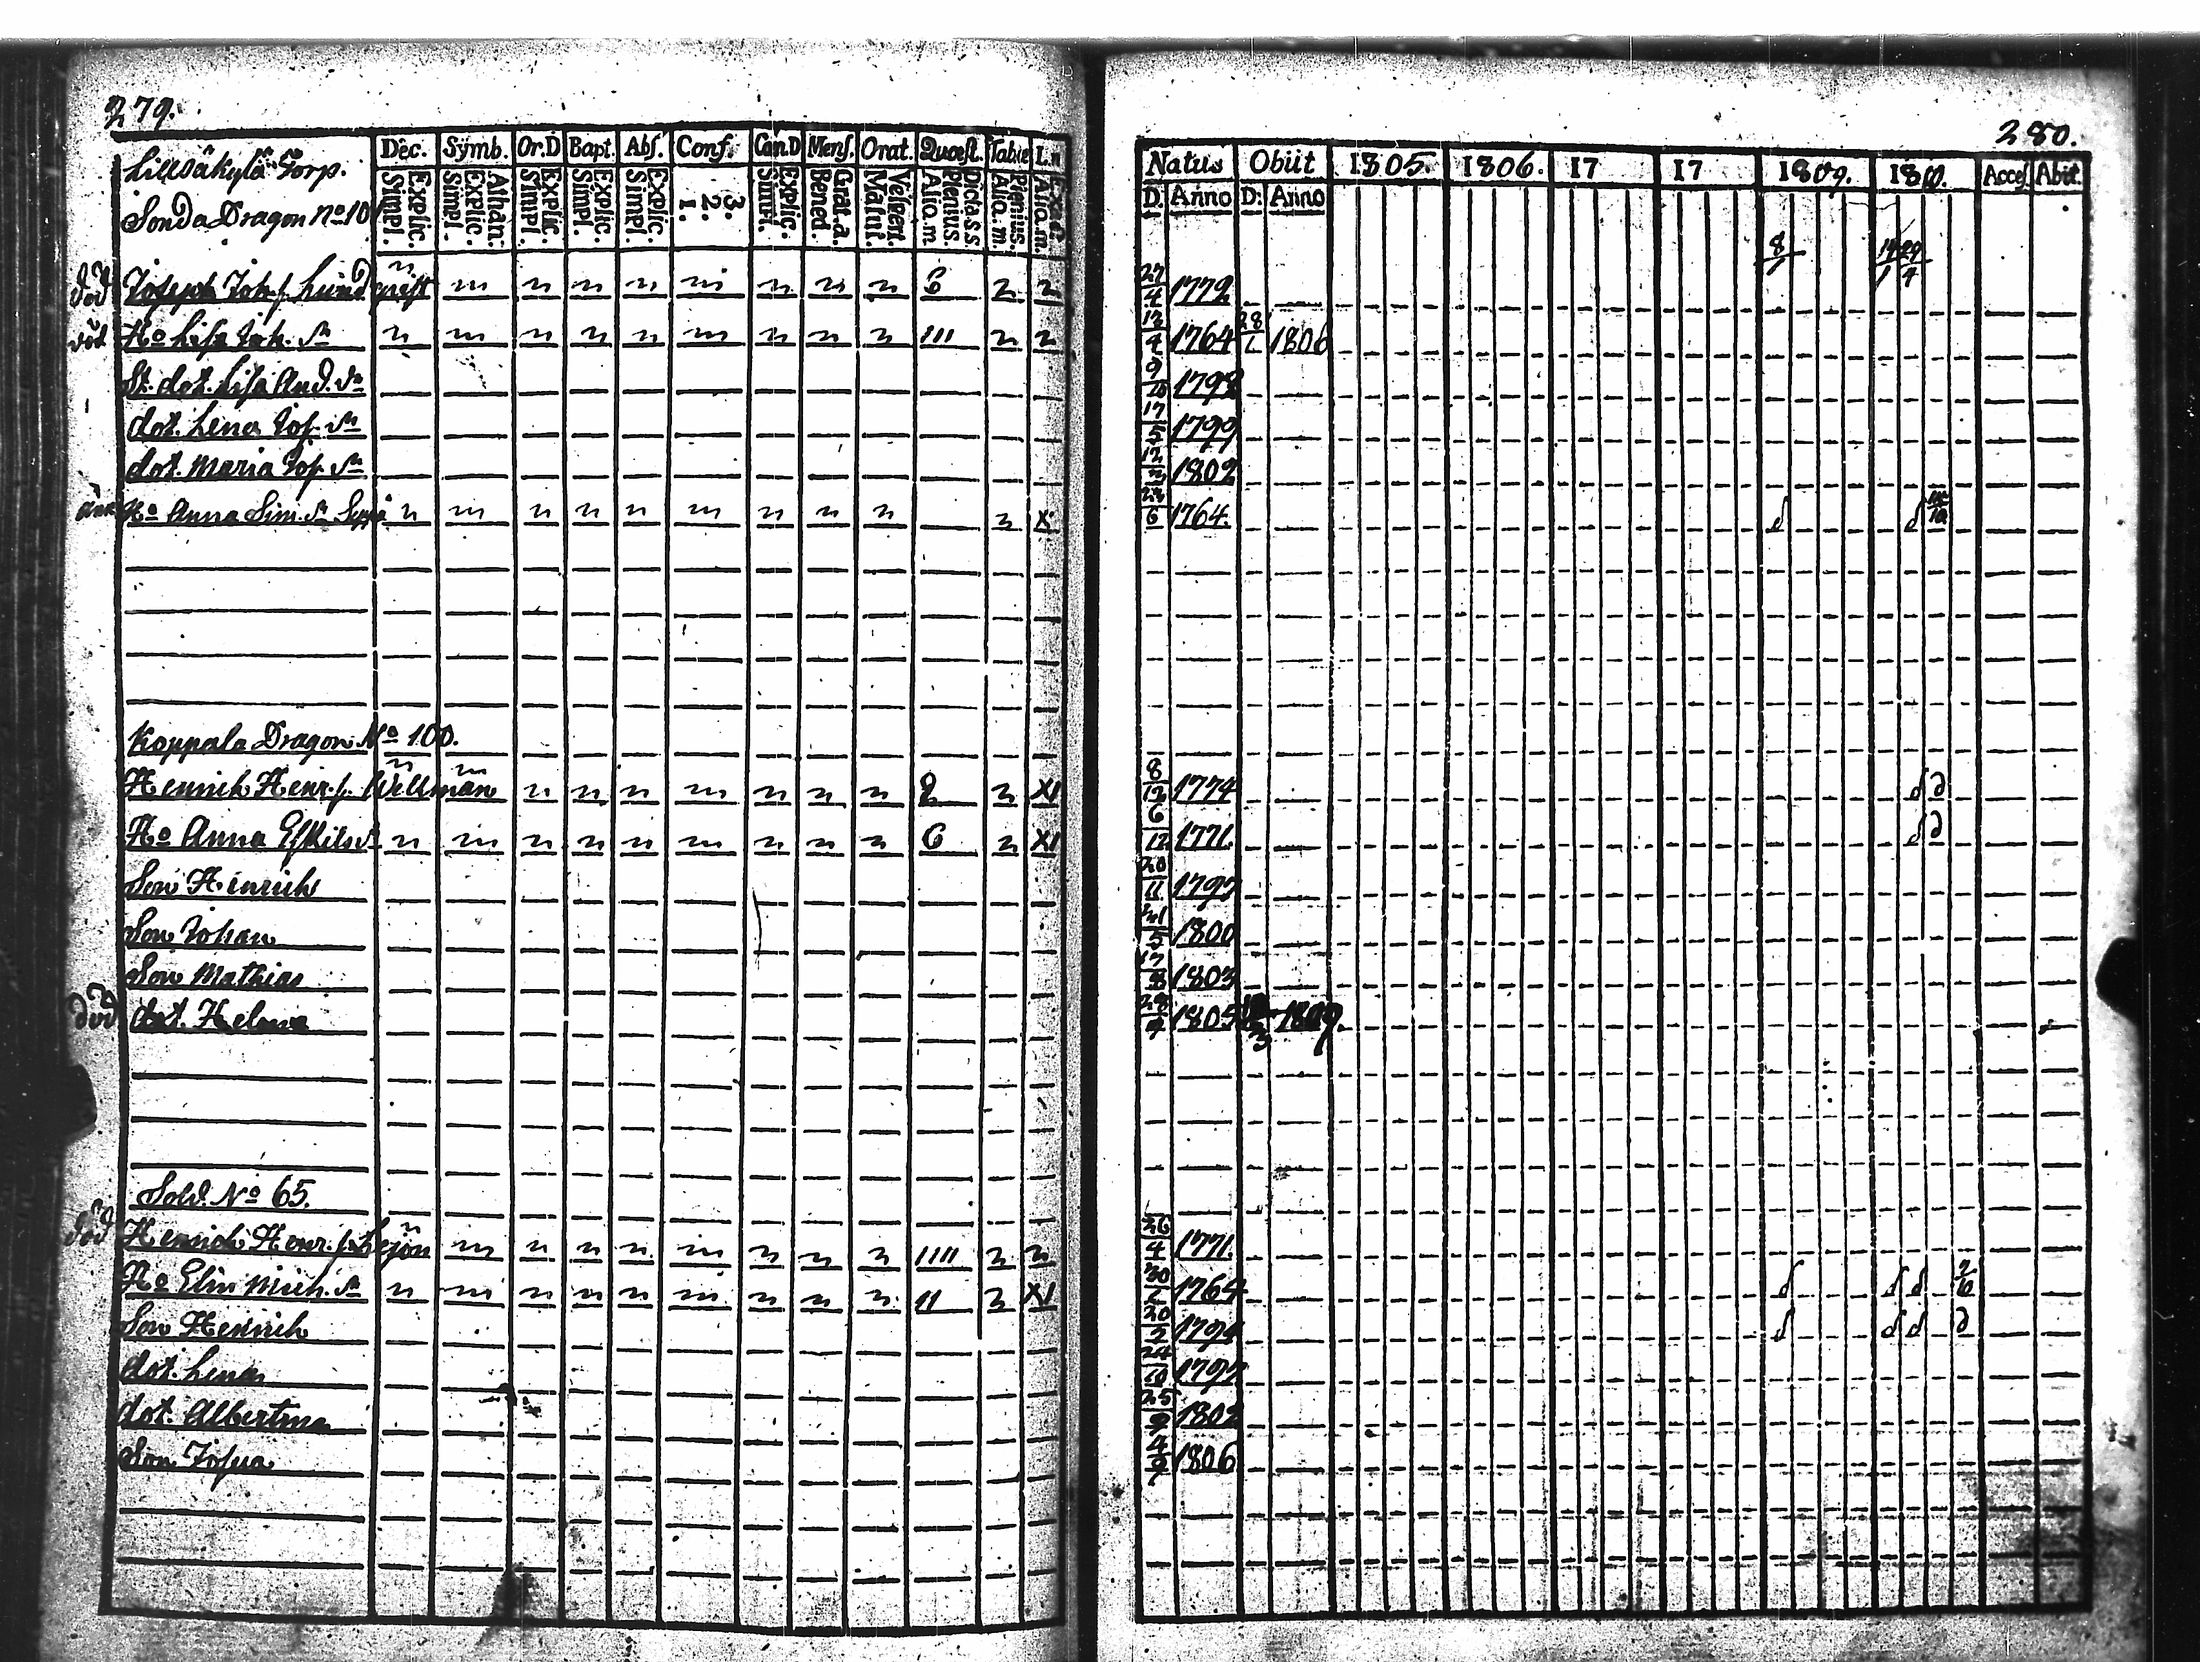 279.
Dec. Symb. Or.D Bapt. Abs. Conf. Can.D Mens. Orat. Quaest. Tabu
Explic. Simpl. Athan. Explic. Simpl. Explic. Simpl. Explic. Simpl. Explic. Simpl. 3. 2. 1. Explic. Simpl. Grat. a. Bened. Vespert. Matut. Dicta s.s. Plenius. Aliq. m. Plenius. Aliq. m. Aliq. m.
Torp.
Sonda Dragon No 10
död Joseph Joh. s. Lund n n n n n n n n 6 2 2
död Ho Lisa Joh. dr n n n n n n n n n III 2 2
St. dot. Lisa And. dr
dot. Lena Jos. dr
dot. Maria Jos. dr
Ho Anna Sim. dr n n n n n n n n n 2 X
Koppala Dragon No 100.
Henrich Henr. s. Wellman n n n n n n n n n 2 2 XI
Ho Anna Eskils dr n n n n n n n n n 6 2 XI
Son Henrich
Son Johan
Son Mathias
död dot. Helena
Sold. No 65.
död Henrich Henr. s. Lejon n n n n n n n n IIII 2 2
Ho Elin Mich. dr n n n n n n n n n II 2 XI
Son Henrich
dot. Lena
dot. Albertina
Son Josua
280.
Natus Obiit 1805. 1806. 17 17 1809. 1810. Acces. Abit.
D. Anno D: Anno
27/4 1772
12/4 1764 1806
9/10 1798
17/5 1799
1802
6 1764.
8/12 1774
6/12 1771.
20/11 1797
5 1800
17 1803
28 1805 3 1809.
26/4 1771.
30 1764
20 1794
24/10 1797
25/9 1802
4/9 1806